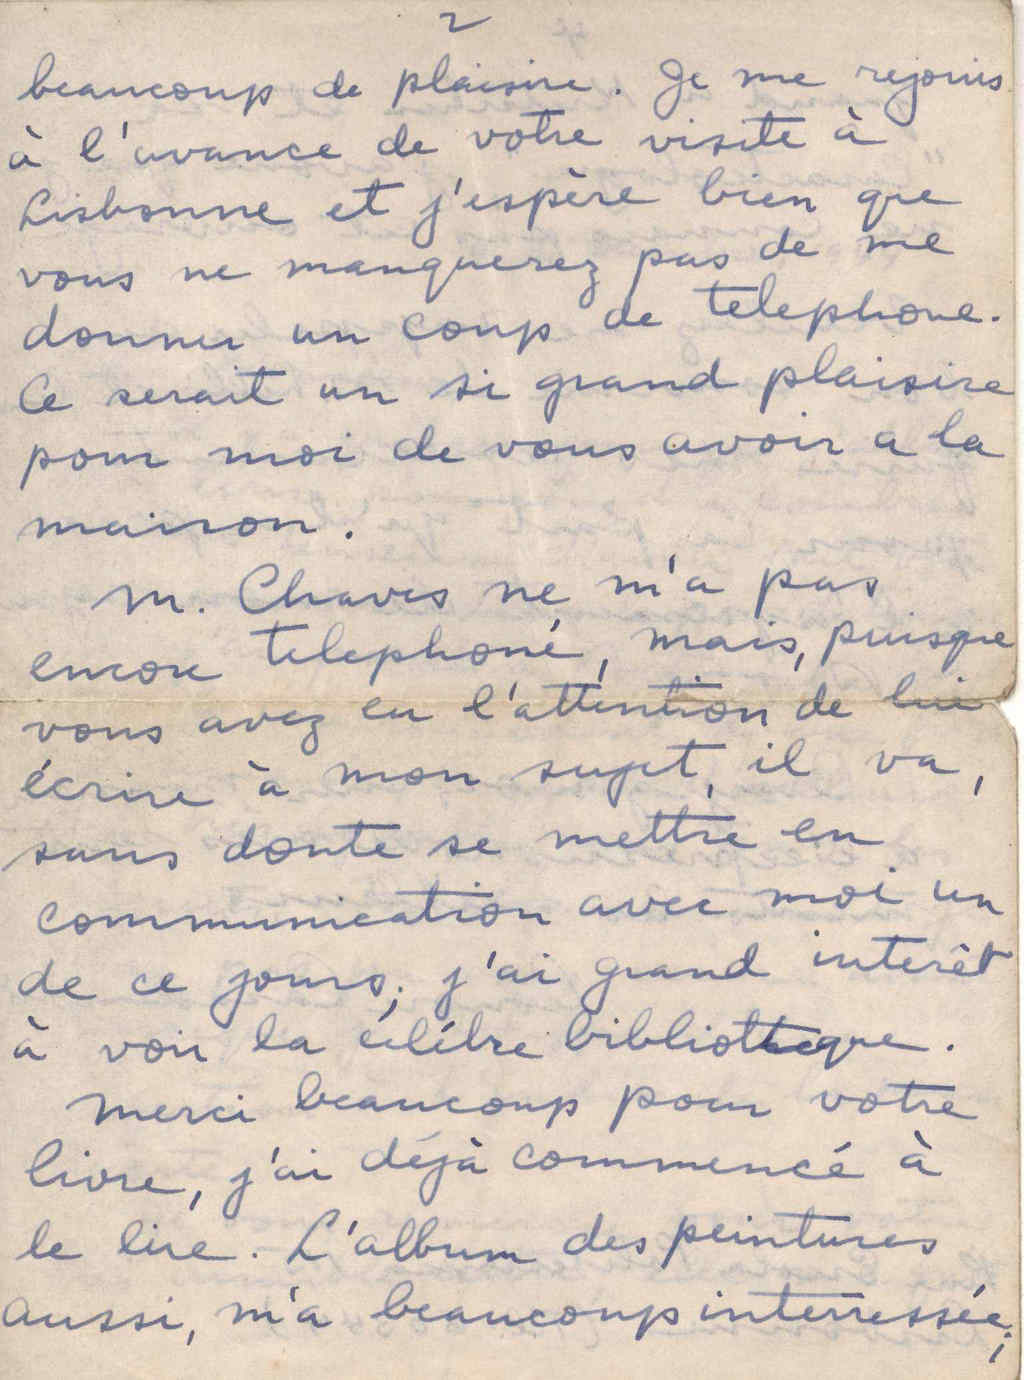 2
beaucoup de plaisire. Je me rejouis
à l'avance de votre visite à
Lisbonne et j'espère bien que
vous ne manquerez pas de me
donner un coup de telephone.
Ce serait un si grand plaisire
pour moi de vous avoir a la
maison.
M. Chaves ne m'a pas
encore telephoné, mais, puisque
vous avez eu l'attention de lui
écrire à mon sujet, il va,
sans doute se mettre en
communication avec moi un
de ce jours; j'ai grand interêt
à voir la célébre bibliotheque.
Merci beaucoup pour votre
livre, j'ai déjà commencé à
le lire. L'album des peintures
aussi, m'a beaucoup interressée;